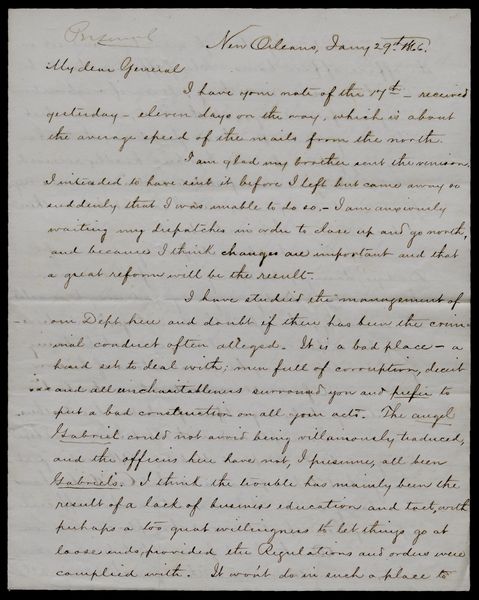 Personal
New Orleans, Jany 29th 1866.
My dear General
I have your note of the 17th - received
yesterday - eleven days on the way, which is about
the average speed of the mails from the north.
I am glad my brother sent the venison.
I intended to have sent it before I left but came away so
suddenly that I was unable to do so. - I am anxiously
waiting my dispatches in order to close up and go north,
and because I think changes are important and that
a great reform will be the result.
I have studied the management of
our Dept here and doubt if there has been the crim-
inal conduct often alleged. It is a bad place - a
hard set to deal with; men full of corruption, deceit
and all uncharitableness surround you and prefer to
put a bad construction on all your acts. The angel
Gabriel could not avoid being villainously traduced;
and the officers here have not, I presume, all been
Gabriels. I think the trouble has mainly been the
result of a lack of business education and tact, with
perhaps a too great willingness to let things go at
loose ends, provided the Regulations and orders were
complied with. It won't do in such a place to